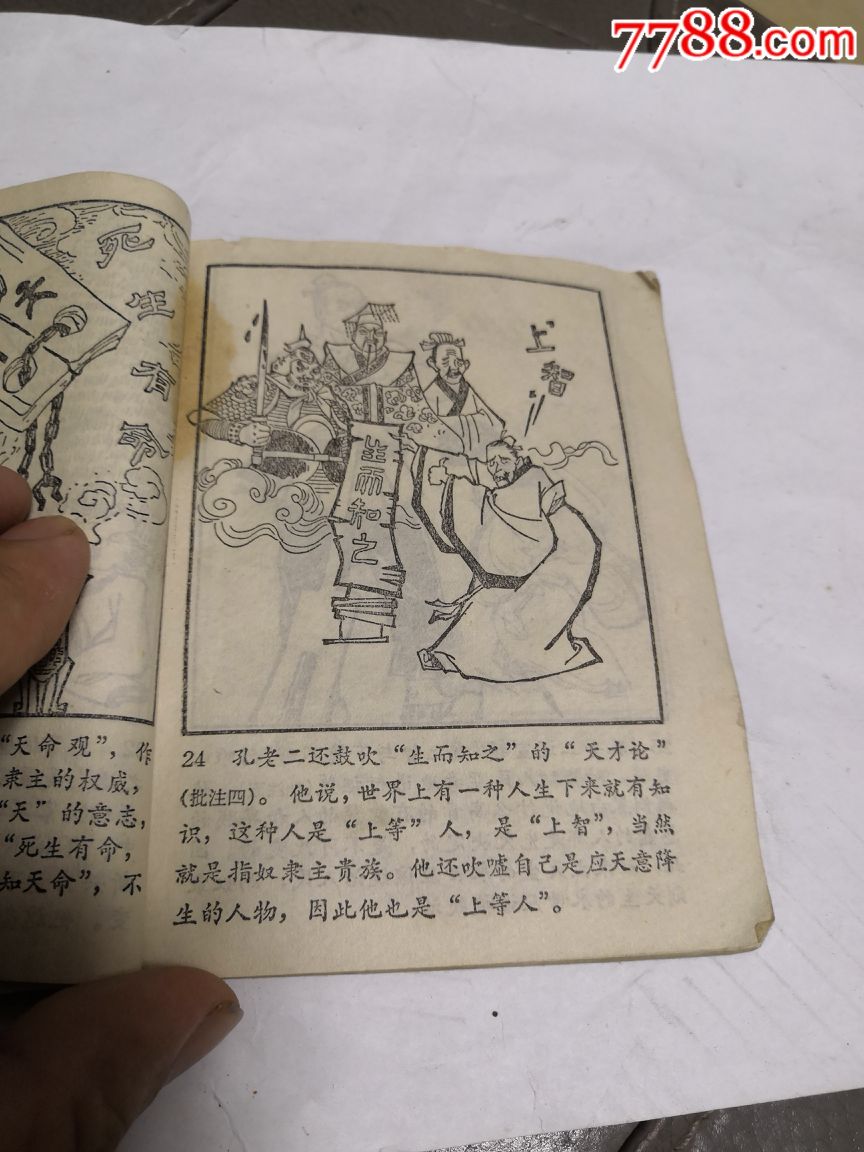 7788.com
死
生
有
命
天
“天命观”，作
隶主的权威，
“天”的意志，
“死生有命，
知天命”，不
上
智
生而知之
24 孔老二还鼓吹“生而知之”的“天才论”
（批注四）。他说，世界上有一种人生下来就有知
识，这种人是“上等”人，是“上智”，当然
就是指奴隶主贵族。他还吹嘘自己是应天意降
生的人物，因此他也是“上等人”。